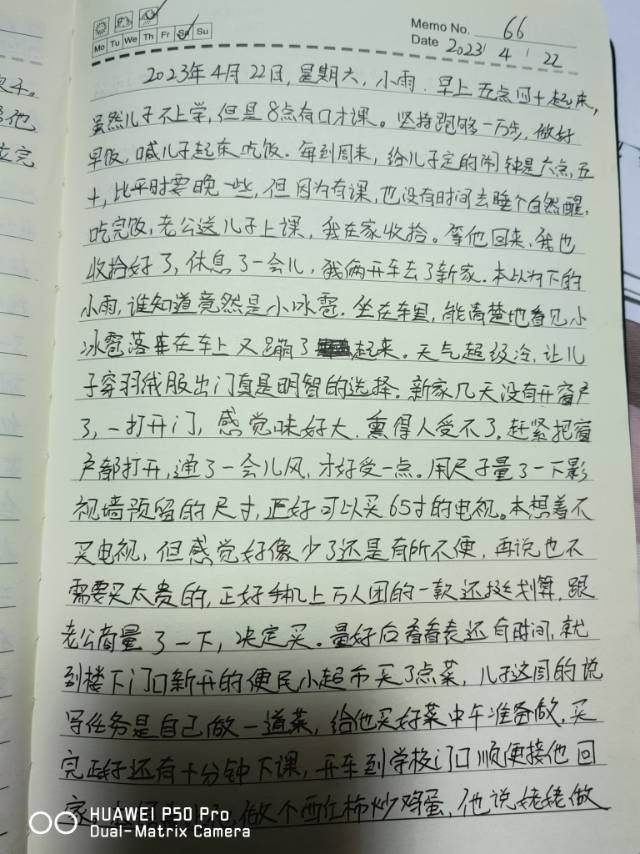 Memo No. 66
Mo Tu We Th Fr Sa Su
Date 2023 / 4 / 22
2023年4月22日,星期六,小雨.早上五点四十起来,
虽然儿子不上学,但是8点有口才课。坚持跑够一万步,做好
早饭,喊儿子起来吃饭.每到周末,给儿子定的闹钟是六点五
十,比平时要晚一些,但因为有课,也没有时间去睡个自然醒.
吃完饭,老公送儿子上课,我在家收拾。等他回来,我也
收拾好了,休息了一会儿,我俩开车去了新家.本以为下的
小雨,谁知道竟然是小冰雹.坐在车里,能清楚地看见小
冰雹落在车上又蹦了起来.天气超级冷,让儿
子穿羽绒服出门真是明智的选择.新家几天没有开窗户
了,一打开门,感觉味好大.熏得人受不了.赶紧把窗
户都打开,通了一会儿风,才好受一点.用尺子量了一下影
视墙预留的尺寸,正好可以买65寸的电视。本想着不
买电视,但感觉好像少了还是有所不便,再说也不
需要买太贵的,正好手机上万人团的一款还挺划算,跟
老公商量了一下,决定买.量好后看看表还有时间,就
到楼下门口新开的便民小超市买了点菜,儿子这周的说
写任务是自己做一道菜,给他买好菜中午准备做.买
完正好还有十分钟下课,开车到学校门口顺便接他回
家 做个西红柿炒鸡蛋,他说姥姥做
HUAWEI P50 Pro
Dual-Matrix Camera